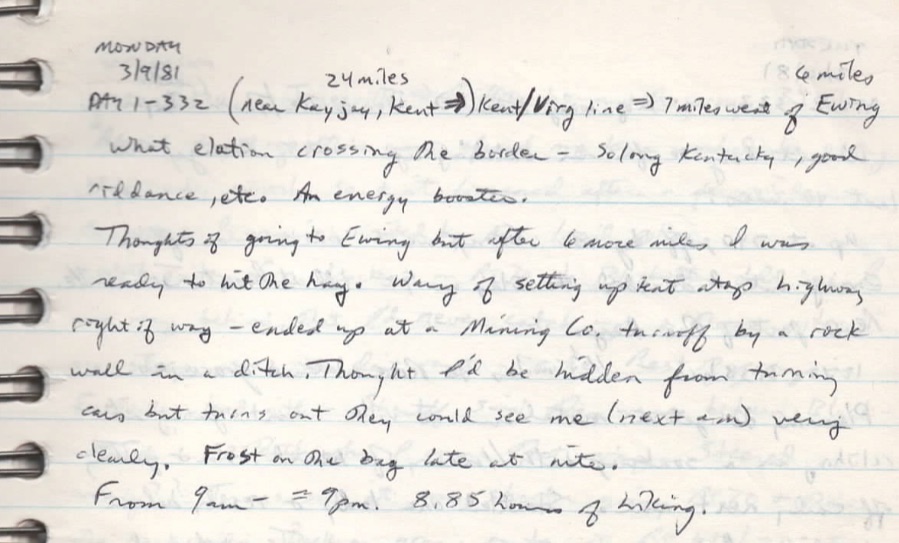 MONDAY
3/9/81 24 miles 6 miles
DAY 1-332 (near Kayjay, Kent ⇒) Kent/Virg line ⇒ 7 miles west of Ewing
What elation crossing the border = So long Kentucky, good
riddance, etc. An energy booster.
Thoughts of going to Ewing but after 6 more miles I was
ready to hit the hay. Wary of setting up tent atop highway
right of way - ended up at a Mining Co. turnoff by a rock
wall in a ditch. Thought I'd be hidden from turning
cars but turns out they could see me (next am) very
clearly. Frost on the bag late at nite.
From 9am - = 9pm. 8.85 hours of hiking.